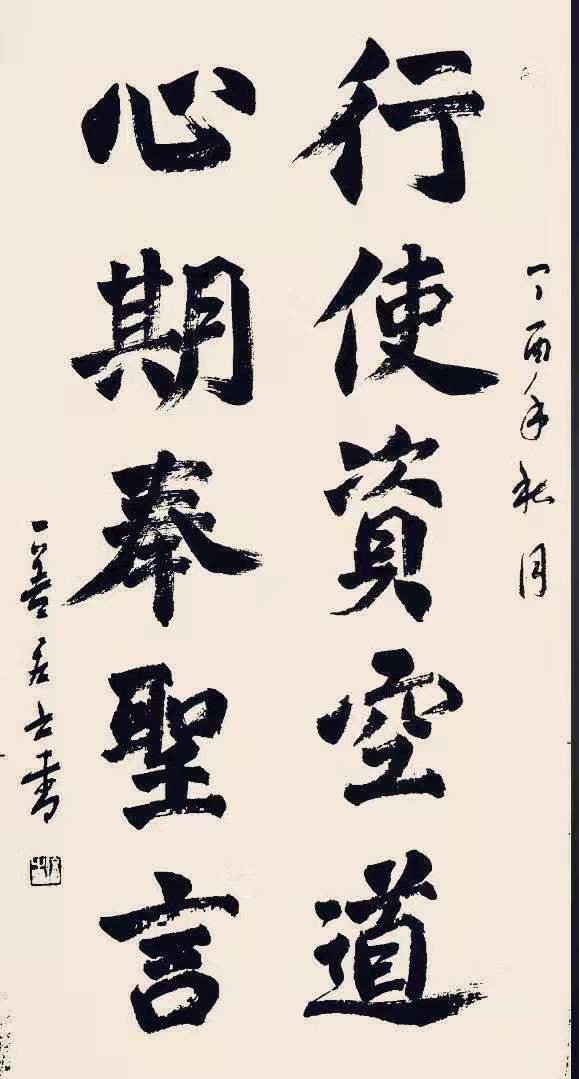 丁酉年秋月
行使資空道
心期奉聖言
一善居士書